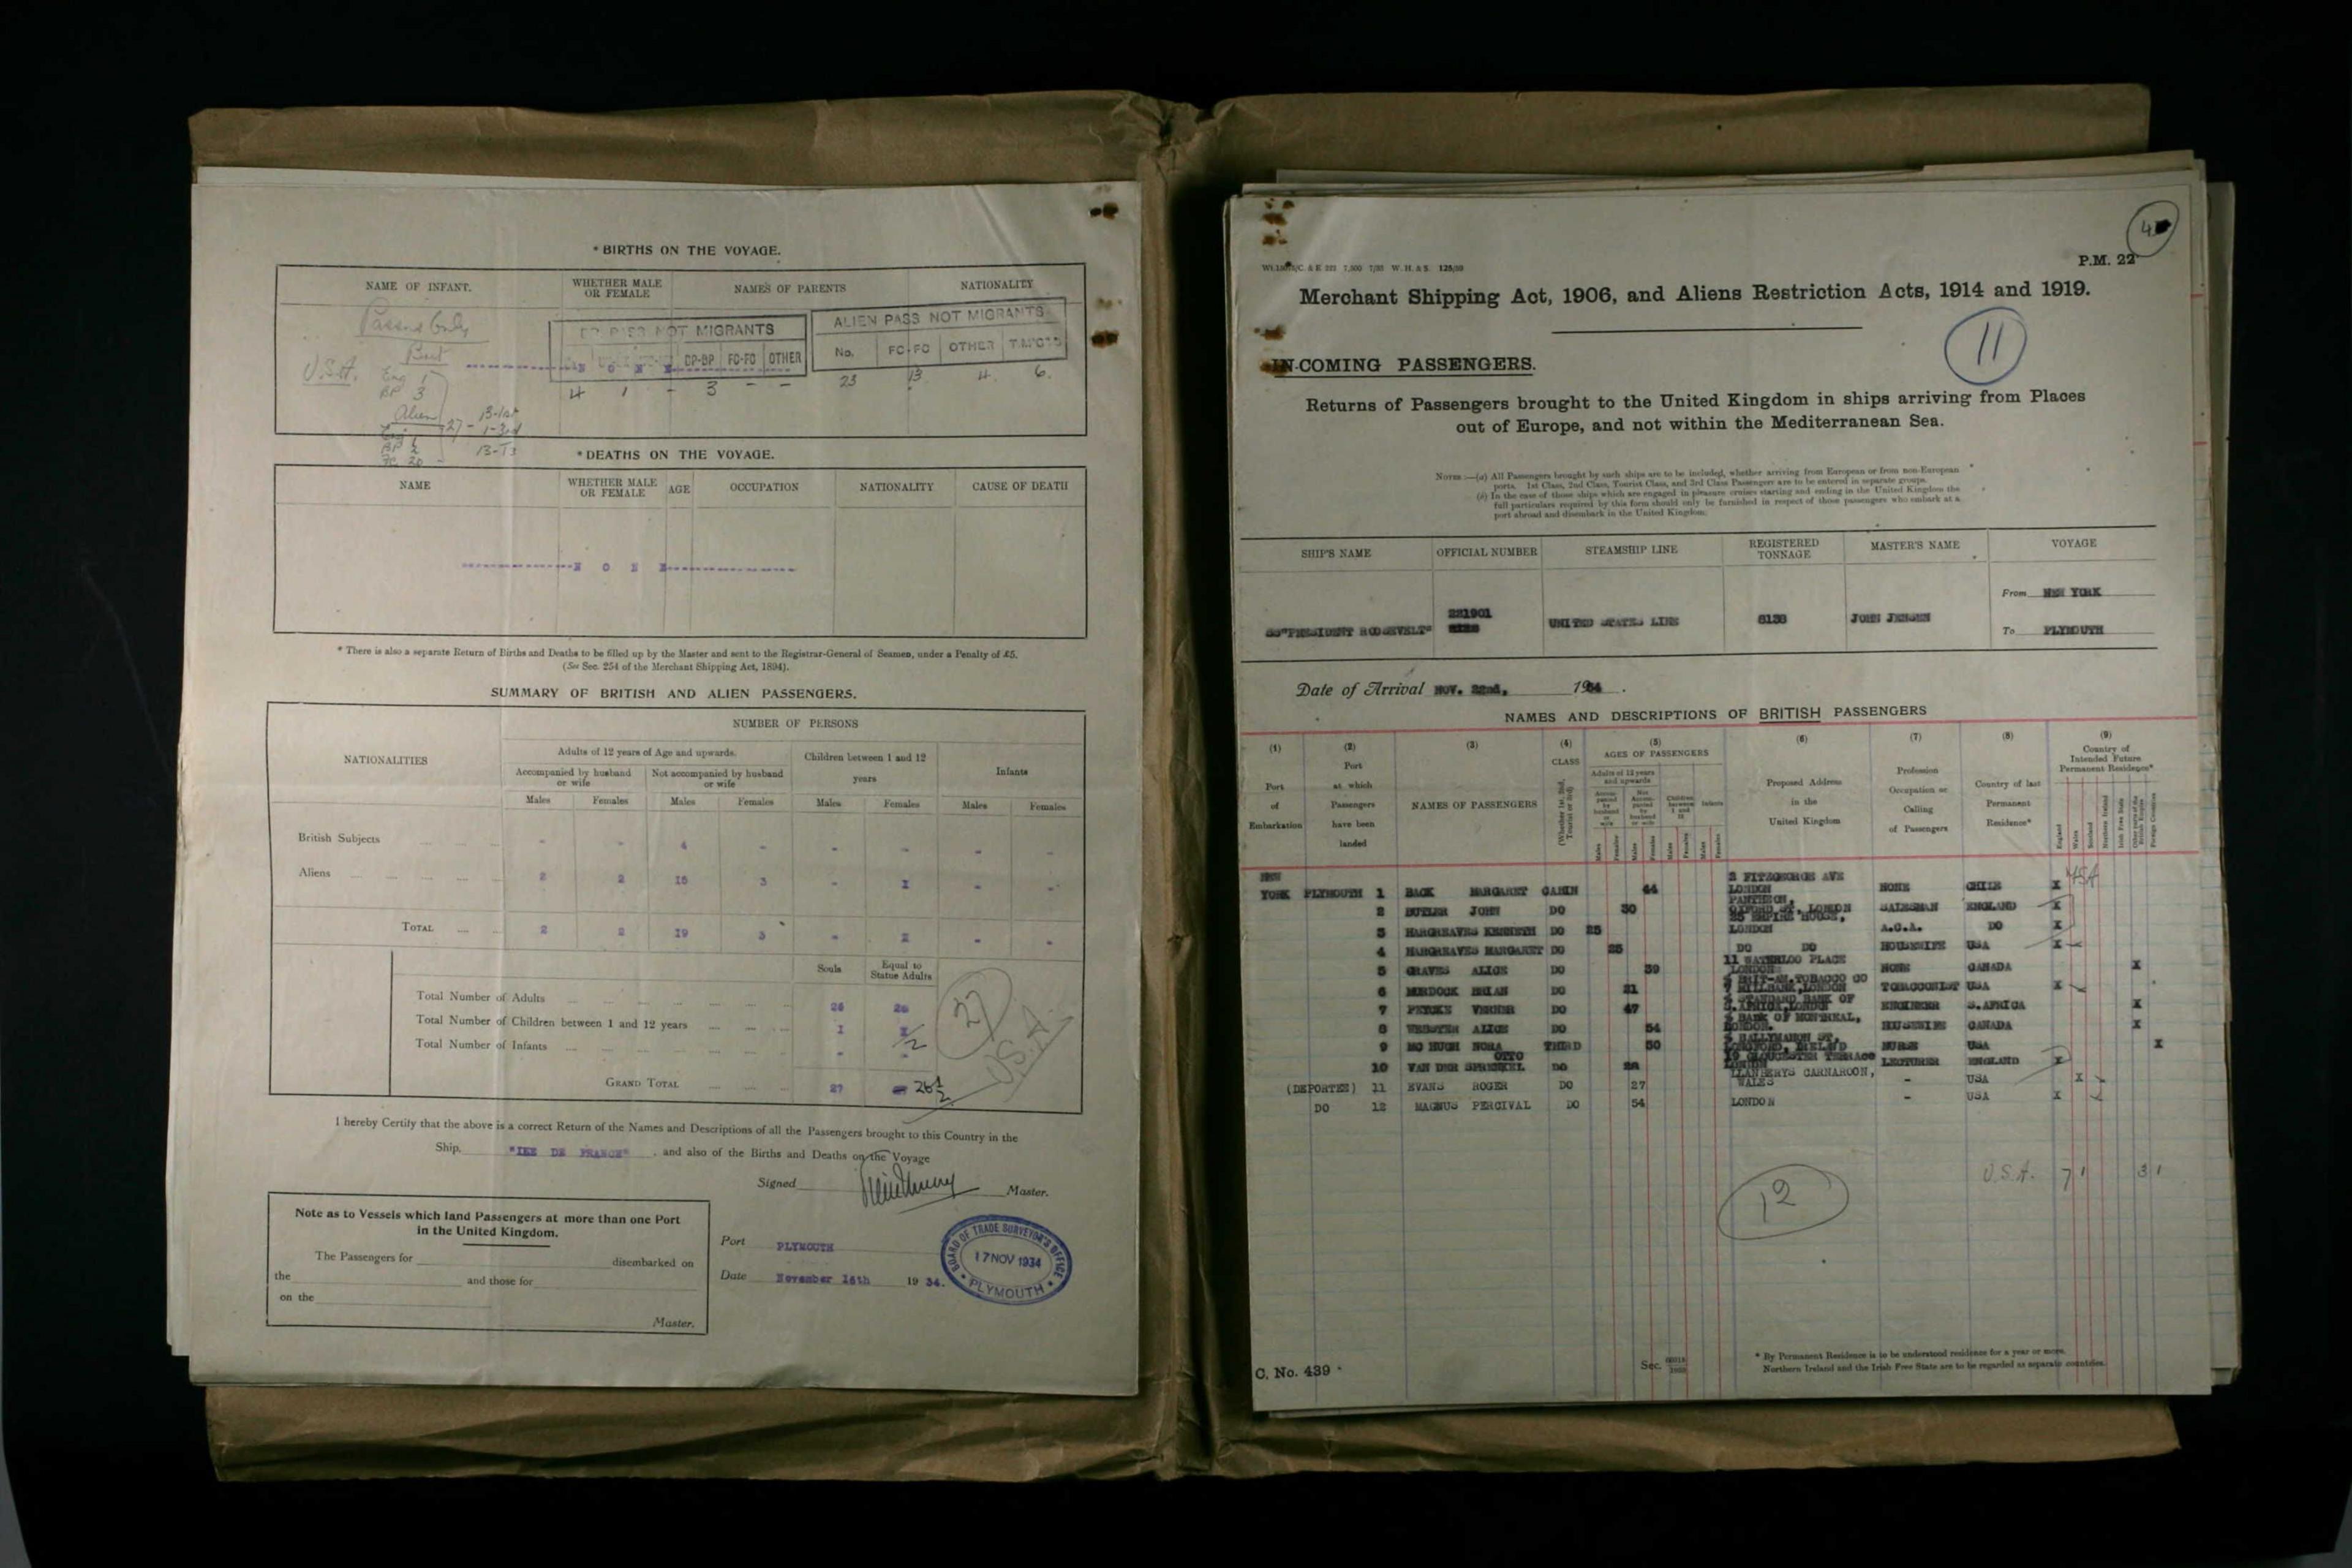 * BIRTHS ON THE VOYAGE.
NAME OF INFANT. WHETHER MALE OR FEMALE NAMES OF PARENTS NATIONALITY
PASS NOT MIGRANTS
BP-BP FC-FC OTHER
4 1 - 3 - -
ALIEN PASS NOT MIGRANTS
No. FC-FC OTHER
23 13 4 6
U.S.A.
Eng 1
BP 3
Alien
27 - 13-1st
1-3rd
13-Ts
* DEATHS ON THE VOYAGE.
NAME WHETHER MALE OR FEMALE AGE OCCUPATION NATIONALITY CAUSE OF DEATH
N O N E
* There is also a separate Return of Births and Deaths to be filled up by the Master and sent to the Registrar-General of Seamen, under a Penalty of £5.
(See Sec. 254 of the Merchant Shipping Act, 1894).
SUMMARY OF BRITISH AND ALIEN PASSENGERS.
NATIONALITIES NUMBER OF PERSONS
Adults of 12 years of Age and upwards. Children between 1 and 12 years Infants
Accompanied by husband or wife Not accompanied by husband or wife
Males Females Males Females Males Females Males Females
British Subjects - - 4 - - - - -
Aliens 2 2 15 3 - 1 - -
TOTAL 2 2 19 3 - 1 - -
Souls Equal to Statue Adults
Total Number of Adults 26 26
Total Number of Children between 1 and 12 years 1 1/2
Total Number of Infants - -
GRAND TOTAL 27 26½
27
U.S.A.
I hereby Certify that the above is a correct Return of the Names and Descriptions of all the Passengers brought to this Country in the
Ship, DE FRANCE" , and also of the Births and Deaths on the Voyage
Signed Master.
Note as to Vessels which land Passengers at more than one Port
in the United Kingdom.
The Passengers for disembarked on
the and those for
on the
Master.
Port PLYMOUTH
Date November 16th 19 34.
BOARD OF TRADE SURVEYOR'S OFFICE
17 NOV 1934
PLYMOUTH
P.M. 22
Merchant Shipping Act, 1906, and Aliens Restriction Acts, 1914 and 1919.
11
IN-COMING PASSENGERS.
Returns of Passengers brought to the United Kingdom in ships arriving from Places
out of Europe, and not within the Mediterranean Sea.
NOTES :—(a) All Passengers brought by such ships are to be included, whether arriving from European or from non-European
ports. 1st Class, 2nd Class, Tourist Class, and 3rd Class Passengers are to be entered in separate groups.
(b) In the case of those ships which are engaged in pleasure cruises starting and ending in the United Kingdom the
full particulars required by this form should only be furnished in respect of those passengers who embark at a
port abroad and disembark in the United Kingdom.
SHIP'S NAME OFFICIAL NUMBER STEAMSHIP LINE REGISTERED TONNAGE MASTER'S NAME VOYAGE
SS"PRESIDENT ROOSEVELT" 221901 UNITED STATES LINE 8138 JOHN JENSEN
From NEW YORK
To PLYMOUTH
Date of Arrival NOV. 22nd, 1934 .
NAMES AND DESCRIPTIONS OF BRITISH PASSENGERS
(1) (2) (3) (4) (5) (6) (7) (8) (9)
Port of Embarkation
Port at which Passengers have been landed
NAMES OF PASSENGERS
CLASS (Whether 1st, 2nd, Tourist or 3rd)
AGES OF PASSENGERS
Adults of 12 years and upwards
Accompanied by husband or wife
Not Accompanied by husband or wife
Children between 1 and 12
Infants
Males Females Males Females Males Females Males Females
Proposed Address in the United Kingdom
Profession Occupation or Calling of Passengers
Country of last Permanent Residence*
Country of Intended Future Permanent Residence*
England Wales Scotland Northern Ireland Irish Free State Other parts of the British Empire Foreign Countries
USA
NEW YORK PLYMOUTH 1 BACK MARGARET CABIN 44 2 FITZGEORGE AVE LONDON NONE CHILE X
2 BUTLER JOHN DO 30 PANTHEON, OXFORD ST. LONDON SALESMAN ENGLAND X
3 HARGREAVES KENNETH DO 25 EMPIRE HOUSE, LONDON A.C.A. DO X
4 HARGREAVES MARGARET DO 25 DO DO HOUSEWIFE USA X
5 GRAVES ALICE DO 39 11 WATERLOO PLACE LONDON NONE CANADA X
6 MURDOCK BRIAN DO 21 BRIT-AM.TOBACCO CO 7 MILLBANK,LONDON TOBACCONIST USA X
7 VERNER DO 47 STANDARD BANK OF S.AFRICA,LONDON ENGINEER S.AFRICA X
8 WEBSTER ALICE DO 54 BANK OF MONTREAL, LONDON. HOUSEWIFE CANADA X
9 MC HUGH NORA THIRD 30 BALLYMAHON ST, LONGFORD, IRELAND NURSE USA X
10 VAN DER SPRENKEL OTTO DO 28 19 GLOUCESTER TERRACE LONDON LECTURER ENGLAND X
(DEPORTEE) 11 EVANS ROGER DO 27 LLANBERYS CARNARCON, WALES - USA X
DO 12 MAGNUS PERCIVAL DO 54 LONDON - USA X
U.S.A. 7 1 3 1
12
C. No. 439
Sec.
* By Permanent Residence is to be understood residence for a year or more.
Northern Ireland and the Irish Free State are to be regarded as separate countries.